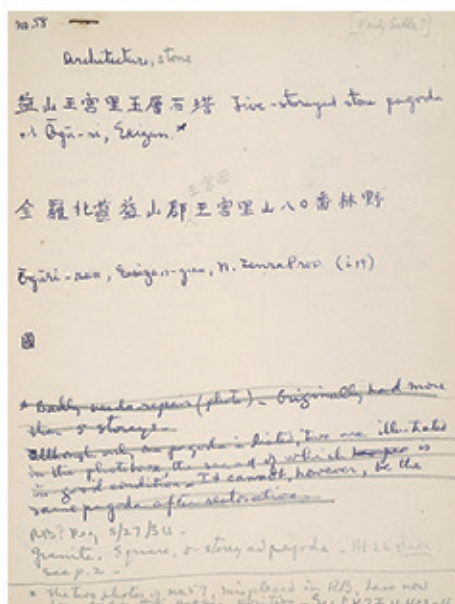 no. 58
[Early Silla?]
Architecture, stone
益山王宮里五層石塔 Five-storeyed stone pagoda
Ōgū-ri, Ekizan.*
王宮面
全羅北道益山郡王宮里山八〇番林野
Ōgūri-san, Ekizan-gun, N. Zenra Prov.
國
* Badly needs repair (photo). Originally had more
than 5 storeys.
Although only one pagoda is listed, two are illustrated
in the photo box, the second of which is
in good condition. It cannot, however, be the
same pagoda after restoration.
5/27/34.
Granite. Square, 5-storeyed pagoda.
See p. 2.
* The two photos of misplaced in RB, have now